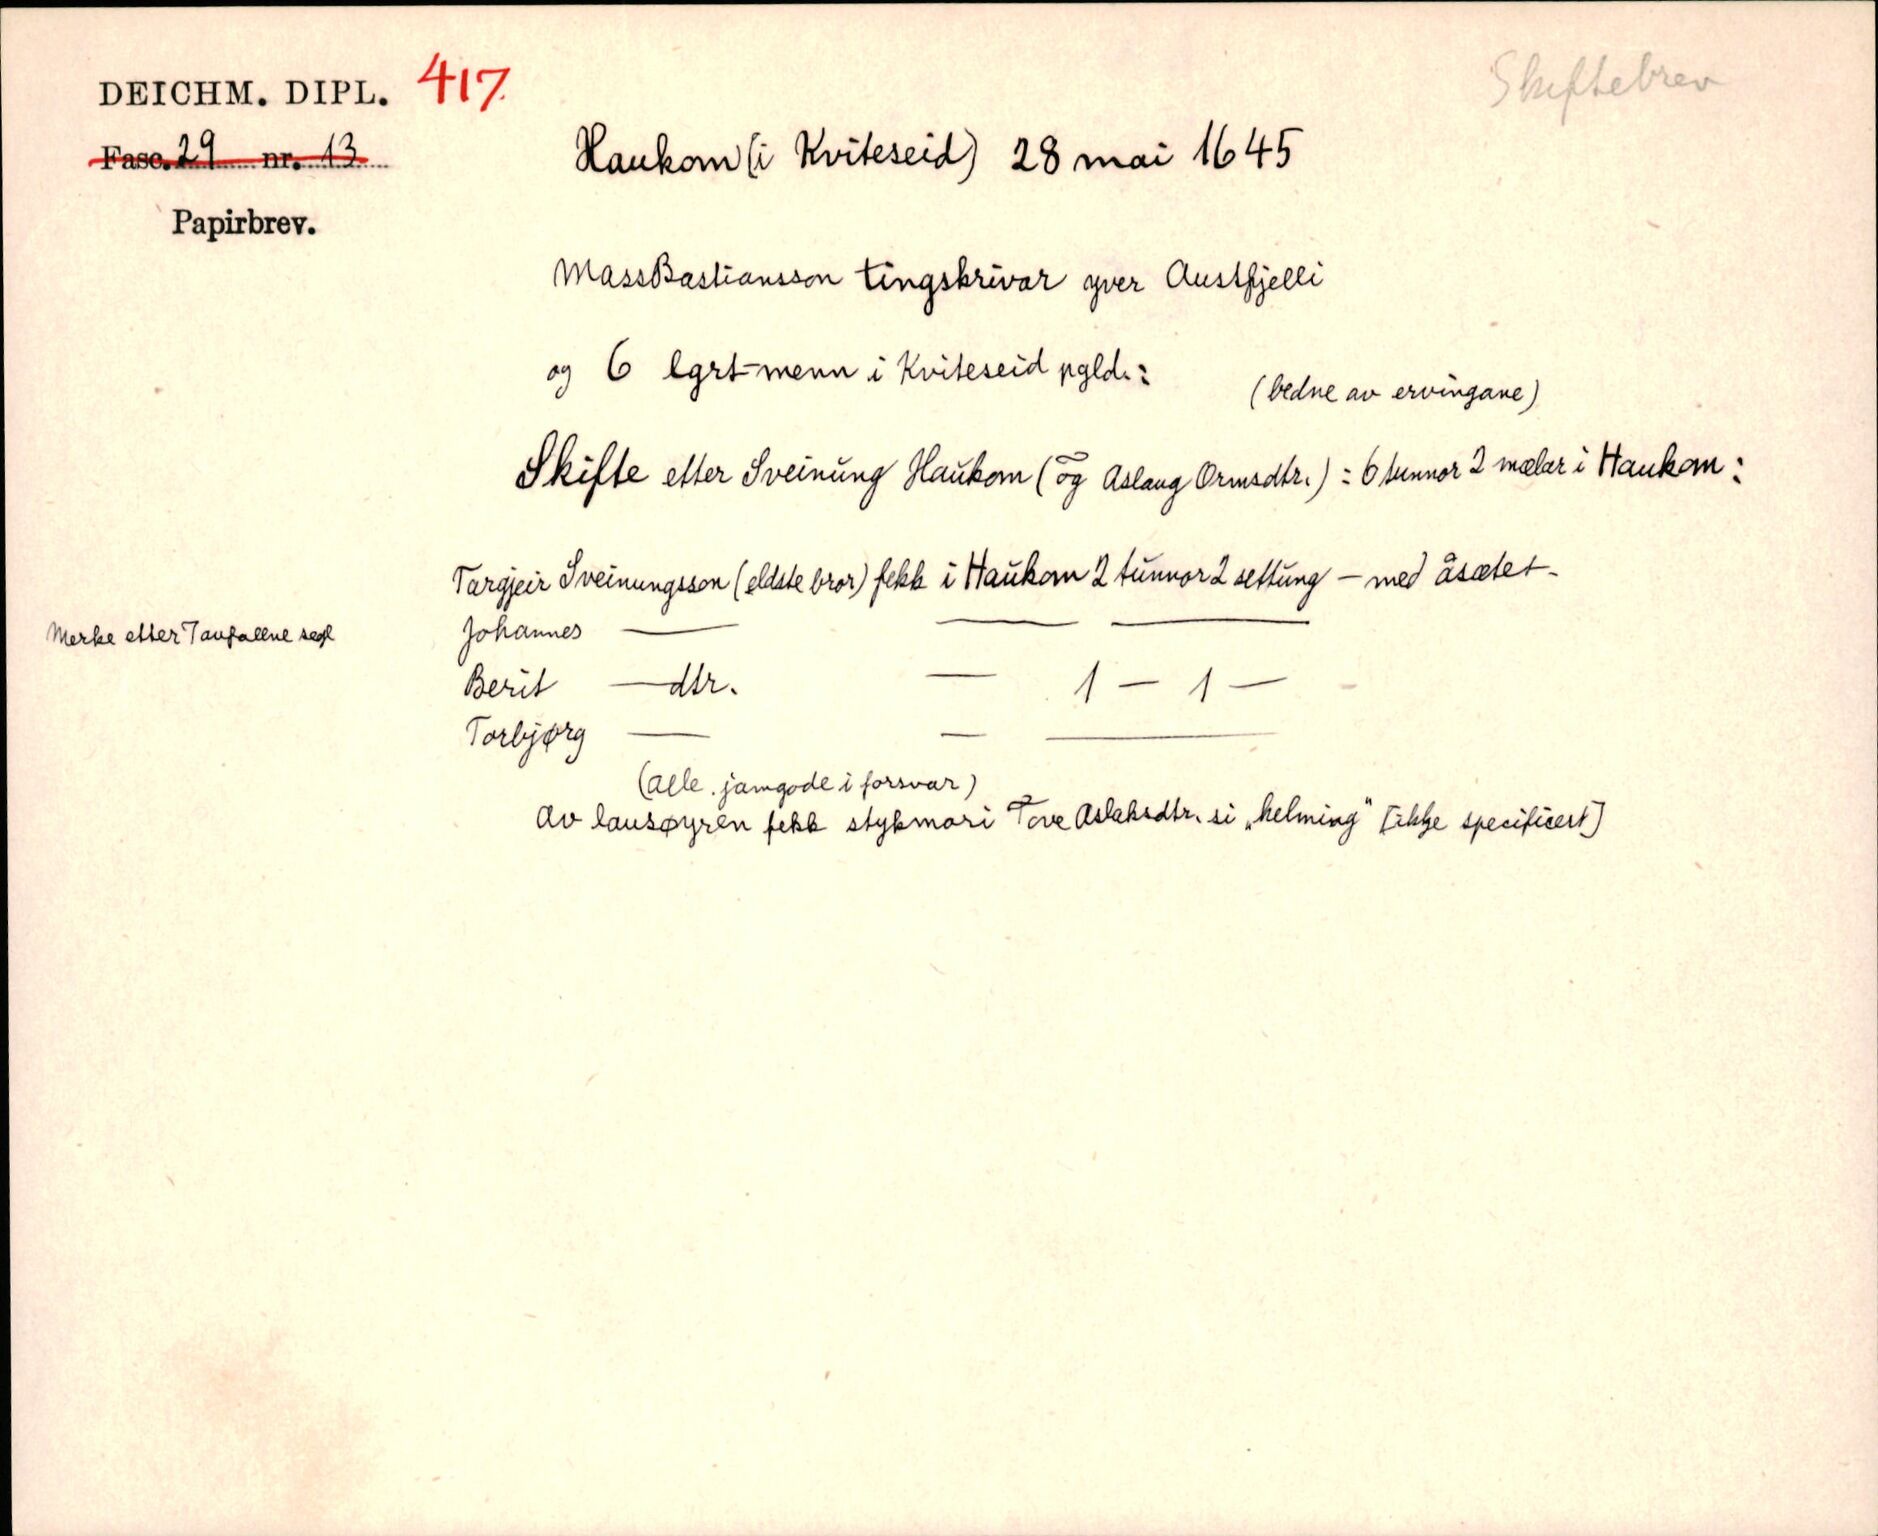 DEICHM. DIPL. 417.
Skiftebrev
Fasc. 29 nr. 13
Haukom (i Kviteseid) 28 mai 1645
Papirbrev.
Mass Bastiansson tingskrivar yver Austfjelli
og 6 lgrt-menn i Kviteseid pgld.:
(bedne av ervingane)
Skifte etter Sveinung Haukom (og Aslaug Ormsdtr.) : 6 tunnor 2 mælar i Haukom :
Targjeir Sveinungsson (eldste bror) fekk i Haukom 2 tunnor 2 settung – med åsætet –
Merke etter 7 avfallne segl
Johannes — — —
Berit — dtr. — 1 — 1 —
Torbjørg — — —
(alle jamgode i forsvar)
Av lausøyren fekk stykmori Tove Aslaksdtr. si „helming" [ikkje specificert]